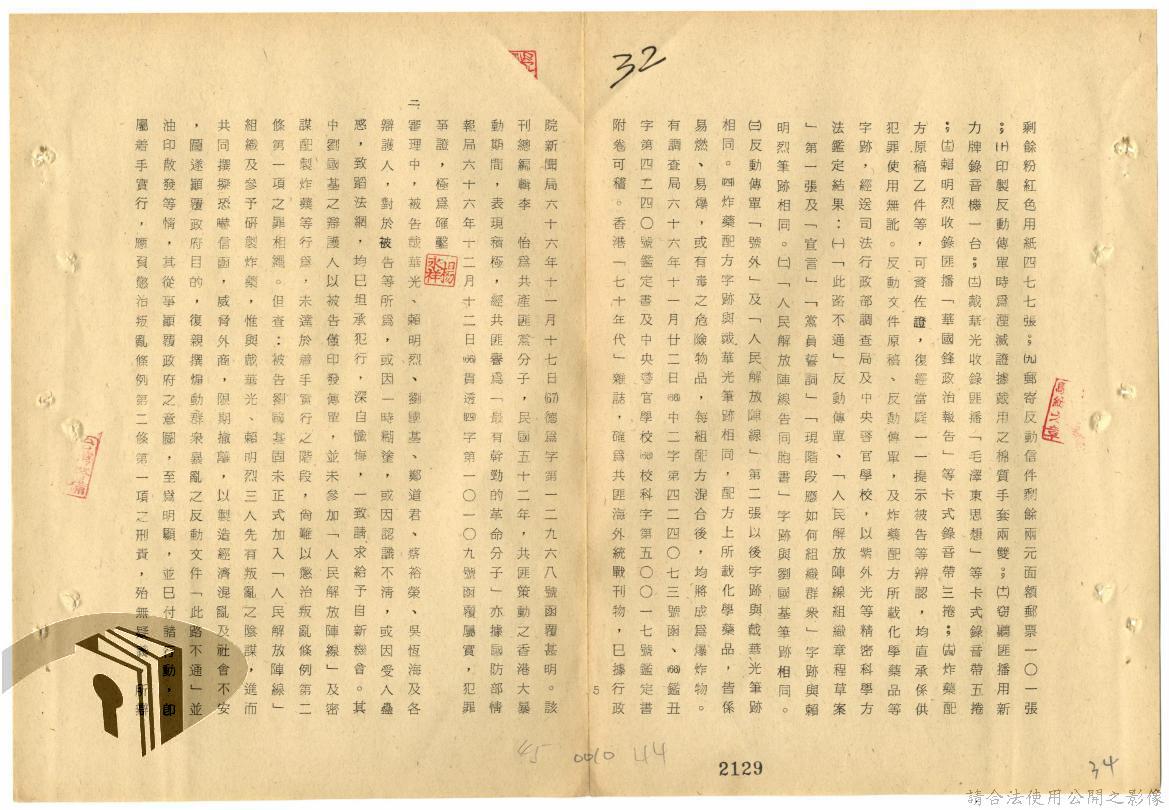 32
剩餘粉紅色用紙四七七張;㈨郵寄反動信件剩餘兩元面額郵票一〇一張
;㈩印製反動傳單時為湮滅證據戴用之棉質手套兩雙;㈪竊聽匪播用新
力牌錄音機一台;㈫戴華光收錄匪播「毛澤東思想」等卡式錄音帶五捲
;賴明烈收錄匪播「華國鋒政治報告」等卡式錄音帶三捲;炸藥配
方原稿乙件等,可資佐證,復經當庭一一提示被告等辨認,均直承係供
犯罪使用無訛。反動文件原稿、反動傳單,及炸藥配方所載化學藥品等
字跡,經送司法行政部調查局及中央警官學校,以紫外光等精密科學方
法鑑定結果:㈠「此路不通」反動傳單、「人民解放陣線組織章程草案
」第一張及「宣言」「黨員誓詞」「現階段應如何組織群衆」字跡與賴
明烈筆跡相同。㈡「人民解放陣線告同胞書」字跡與劉國基筆跡相同。
㈢反動傳單「號外」及「人民解放陣線」第二張以後字跡與戴華光筆跡
相同。㈣炸藥配方字跡與戴華光筆跡相同,配方上所載化學藥品,皆係
易燃、易爆,或有毒之危險物品,每組配方混合後,均將成爲爆炸物。
有調查局六十六年十一月廿二日(66)中二字第四二四〇七三號函、(66)鑑丑
字第四二四〇號鑑定書及中央警官學校(66)校科字第五〇〇一七號鑑定書
附卷可稽。香港「七十年代」雜誌,確爲共匪海外統戰刊物,已據行政
5
院新聞局六十六年十一月十七日(67)德爲字第一二九六八號函覆甚明。該
刊總編輯李 怡爲共產匪黨分子,民國五十二年,共匪策動之香港大暴
動期間,表現積極,經共匪譽爲「最有幹勁的革命分子」亦據國防部情
報局六十六年十二月十二日(66)貫透四字第一〇一〇九號函覆屬實,犯罪
事證,極爲確鑿
楊水祥
二審理中,被告戴華光、賴明烈、劉國基、鄭道君、蔡裕榮、吳恆海及各
辯護人,對於被告等所爲,或因一時糊塗,或因認識不清,或因受人蠱
惑,致蹈法網,均已坦承犯行,深自懺悔,一致請求給予自新機會。其
中劉國基之辯護人以被告僅印發傳單,並未參加「人民解放陣線」及密
謀配製炸藥等行爲,未達於着手實行之階段,尚難以懲治叛亂條例第二
條第一項之罪相繩。但查:被告劉國基固未正式加入「人民解放陣線」
組織及參予研製炸藥,惟與戴華光、賴明烈三人先有叛亂之陰謀,進而
共同撰擬恐嚇信函,威脅外商,限期撤離,以製造經濟混亂及社會不安
,圖遂顛覆政府目的,復親撰煽動群衆暴亂之反動文件「此路不通」並
油印散發等情,其從事顛覆政府之意圖,至爲明顯,並已付諸行動,卽
屬着手實行,應負懲治叛亂條例第二條第一項之刑責,殆無疑義 所辯
45 0010 44
2129
34
請合法使用公開之影像